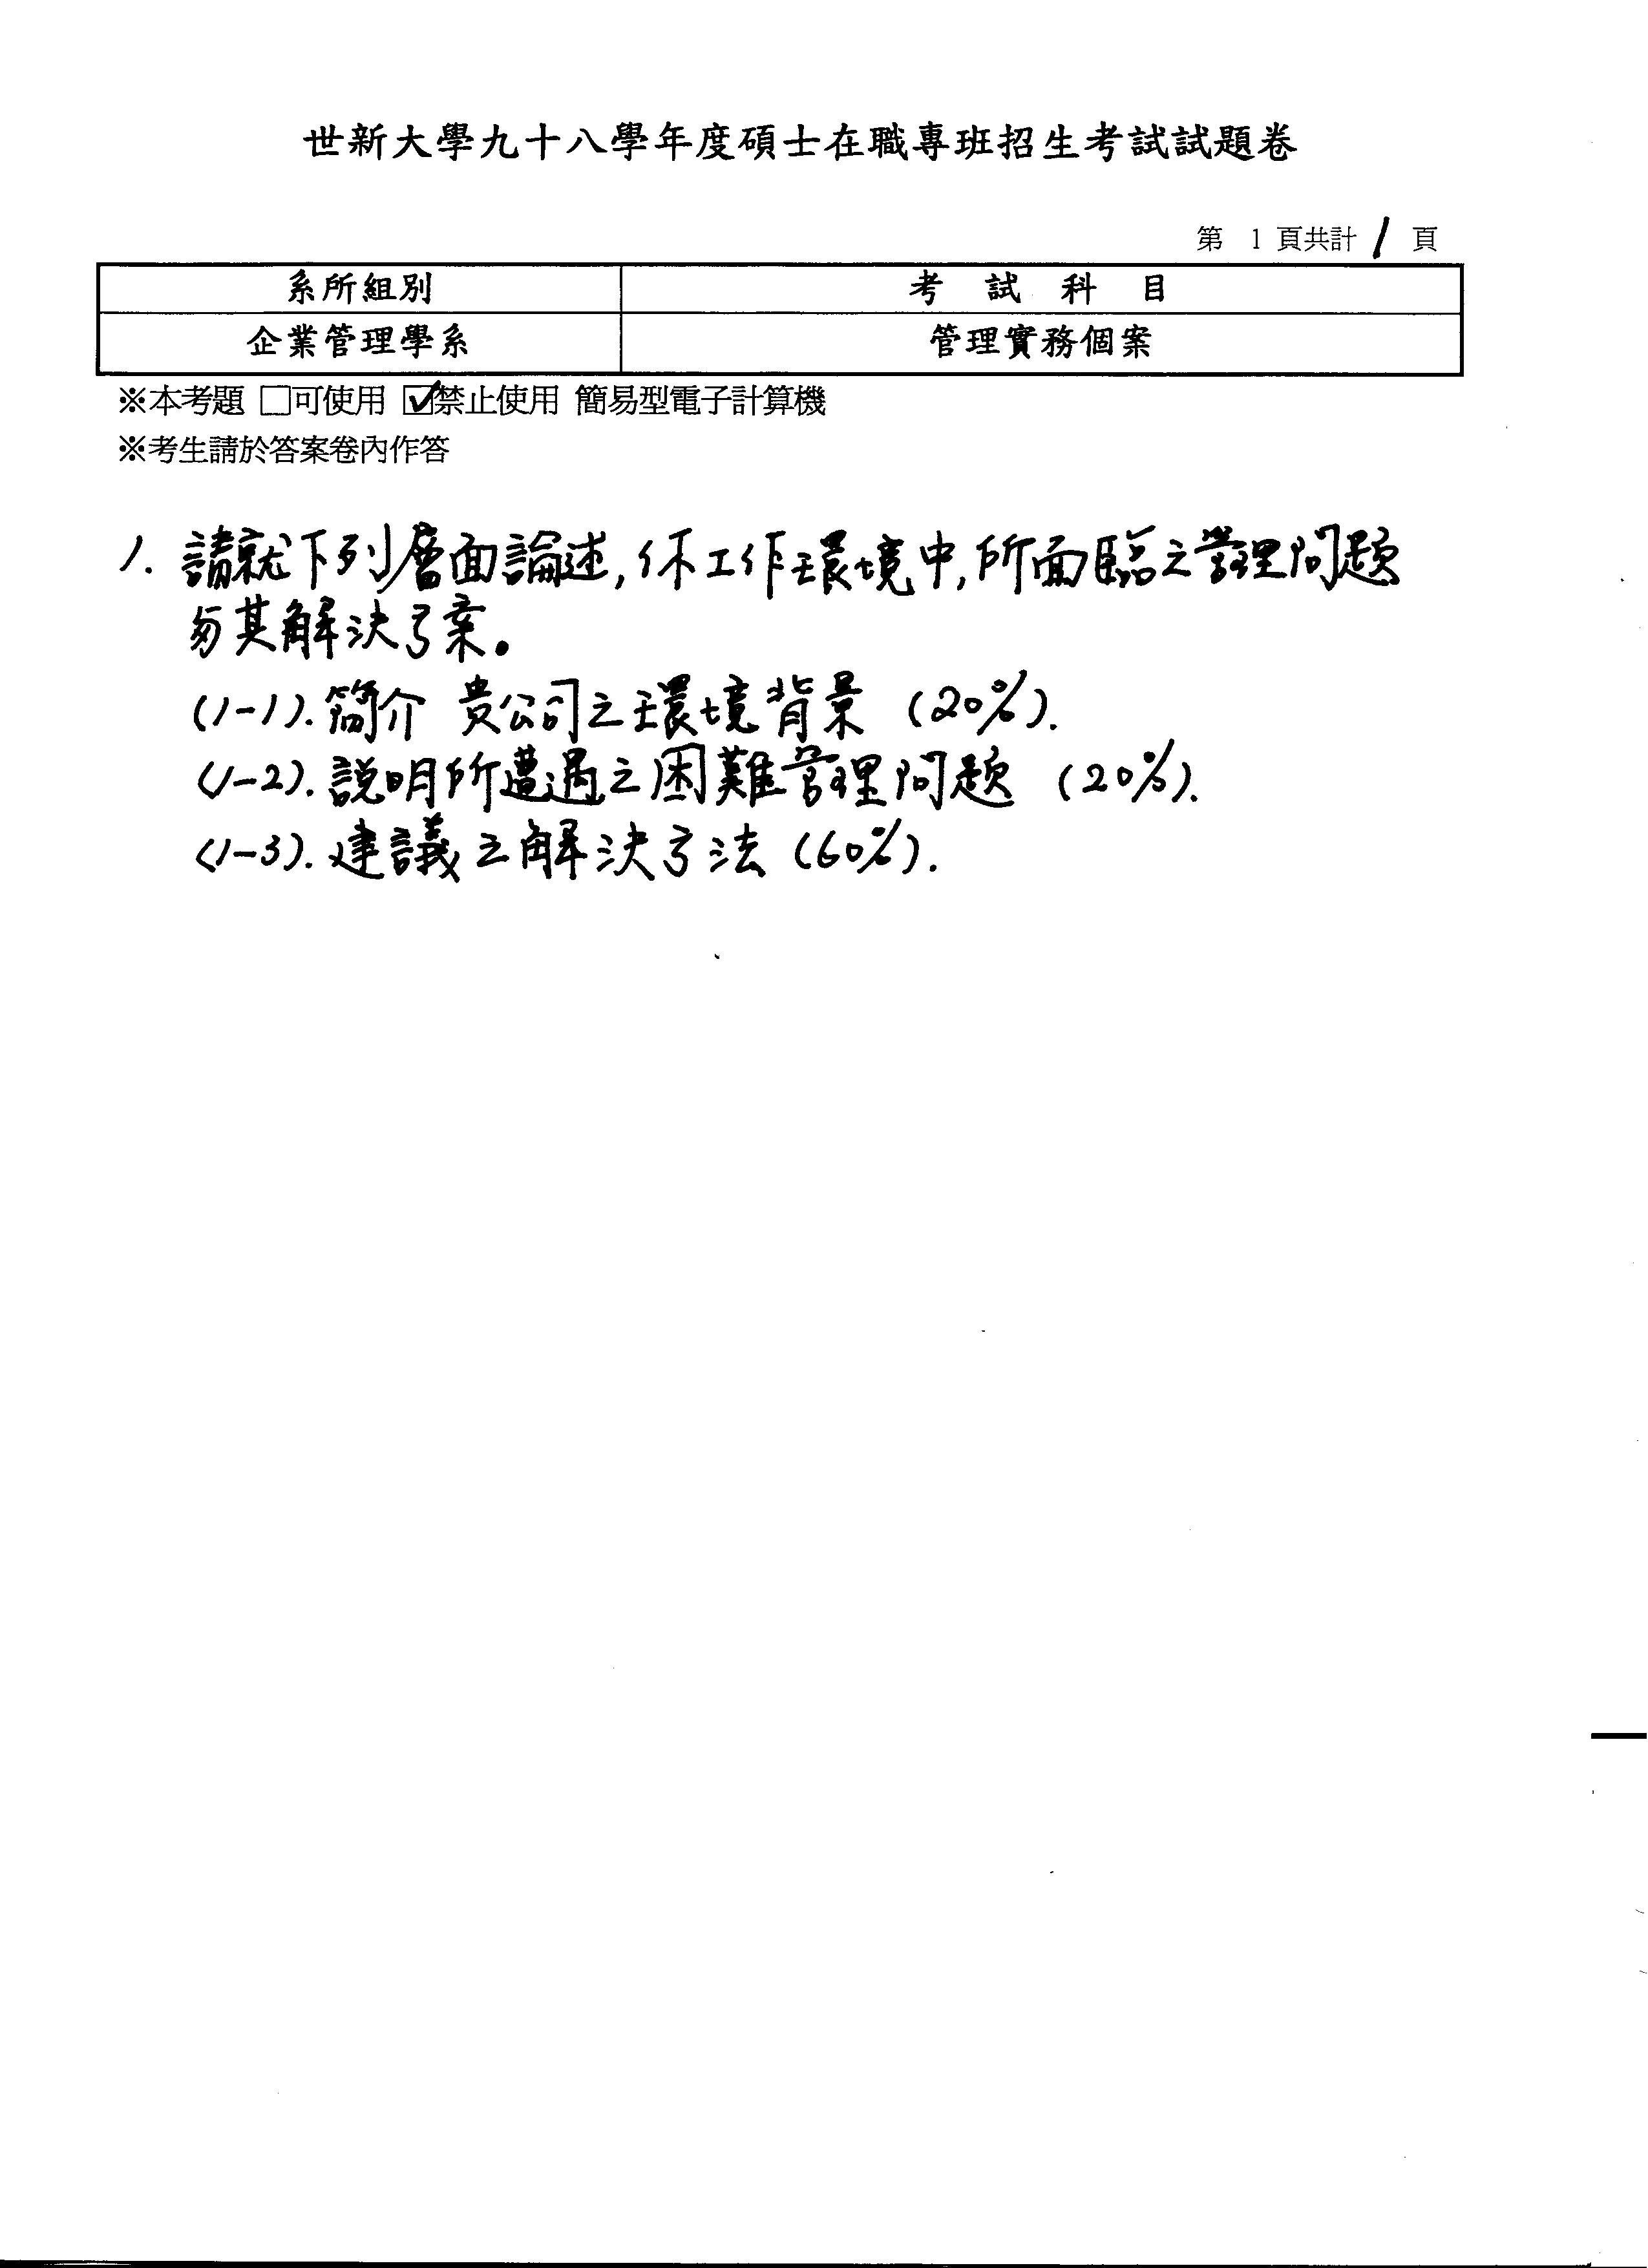 世新大學九十八學年度碩士在職專班招生考試試題卷
第 1 頁共計 1 頁
系所組別 考試科目
企業管理學系 管理實務個案
※本考題 □可使用 ☑禁止使用 簡易型電子計算機
※考生請於答案卷內作答
1. 請就下列層面論述,你工作環境中,所面臨之管理問題
與其解決方案。
(1-1). 簡介 貴公司之環境背景 (20%).
(1-2). 說明所遭遇之困難管理問題 (20%).
(1-3). 建議之解決方法 (60%).